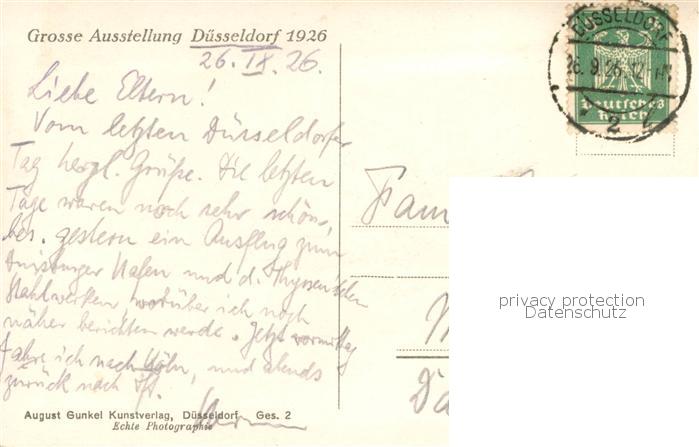 Grosse Ausstellung Düsseldorf 1926
26.IX.26.
Liebe Eltern!
Vom letzten Düsseldorfer
Tag herzl. Grüße. Die letzten
Tage waren noch sehr schön,
bes. gestern ein Ausflug zum
Duisburger Hafen und d. Thyssen'schen
Stahlwerken worüber ich noch
näher berichten werde. Jetzt vormittag
fahre ich nach Köln, und abends
zurück nach
August Gunkel Kunstverlag, Düsseldorf Ges. 2
Echte Photographie
DÜSSELDORF
26.9.26.12-
2
Deutsches
Reich
Fam
privacy protection
Datenschutz